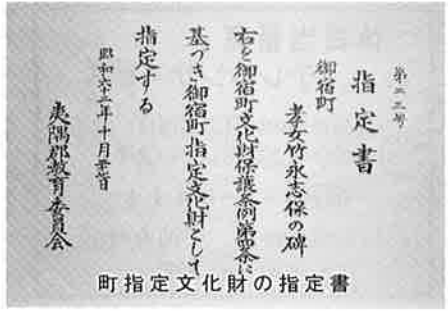 第二三号
指定書
御宿町
孝女竹永志保の碑
右を御宿町文化財保護条例第四条に
基づき御宿町指定文化財として
指定する
昭和六十二年十月廿七日
夷隅郡教育委員会
町指定文化財の指定書